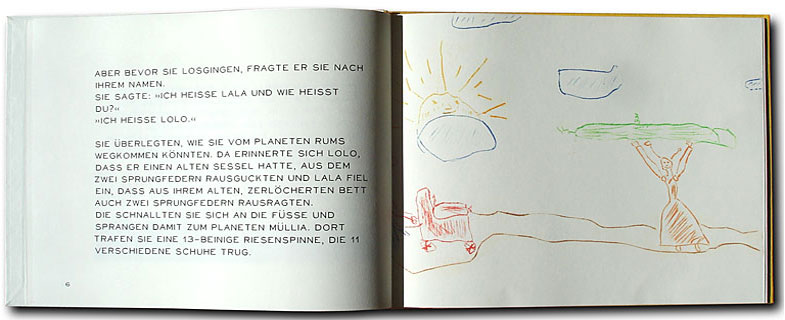 ABER BEVOR SIE LOSGINGEN, FRAGTE ER SIE NACH
IHREM NAMEN.
SIE SAGTE: »ICH HEISSE LALA UND WIE HEISST
DU?«
»ICH HEISSE LOLO.«
SIE ÜBERLEGTEN, WIE SIE VOM PLANETEN RUMS
WEGKOMMEN KÖNNTEN. DA ERINNERTE SICH LOLO,
DASS ER EINEN ALTEN SESSEL HATTE, AUS DEM
ZWEI SPRUNGFEDERN RAUSGUCKTEN UND LALA FIEL
EIN, DASS AUS IHREM ALTEN, ZERLÖCHERTEN BETT
AUCH ZWEI SPRUNGFEDERN RAUSRAGTEN.
DIE SCHNALLTEN SIE SICH AN DIE FÜSSE UND
SPRANGEN DAMIT ZUM PLANETEN MÜLLIA. DORT
TRAFEN SIE EINE 13-BEINIGE RIESENSPINNE, DIE 11
VERSCHIEDENE SCHUHE TRUG.
6